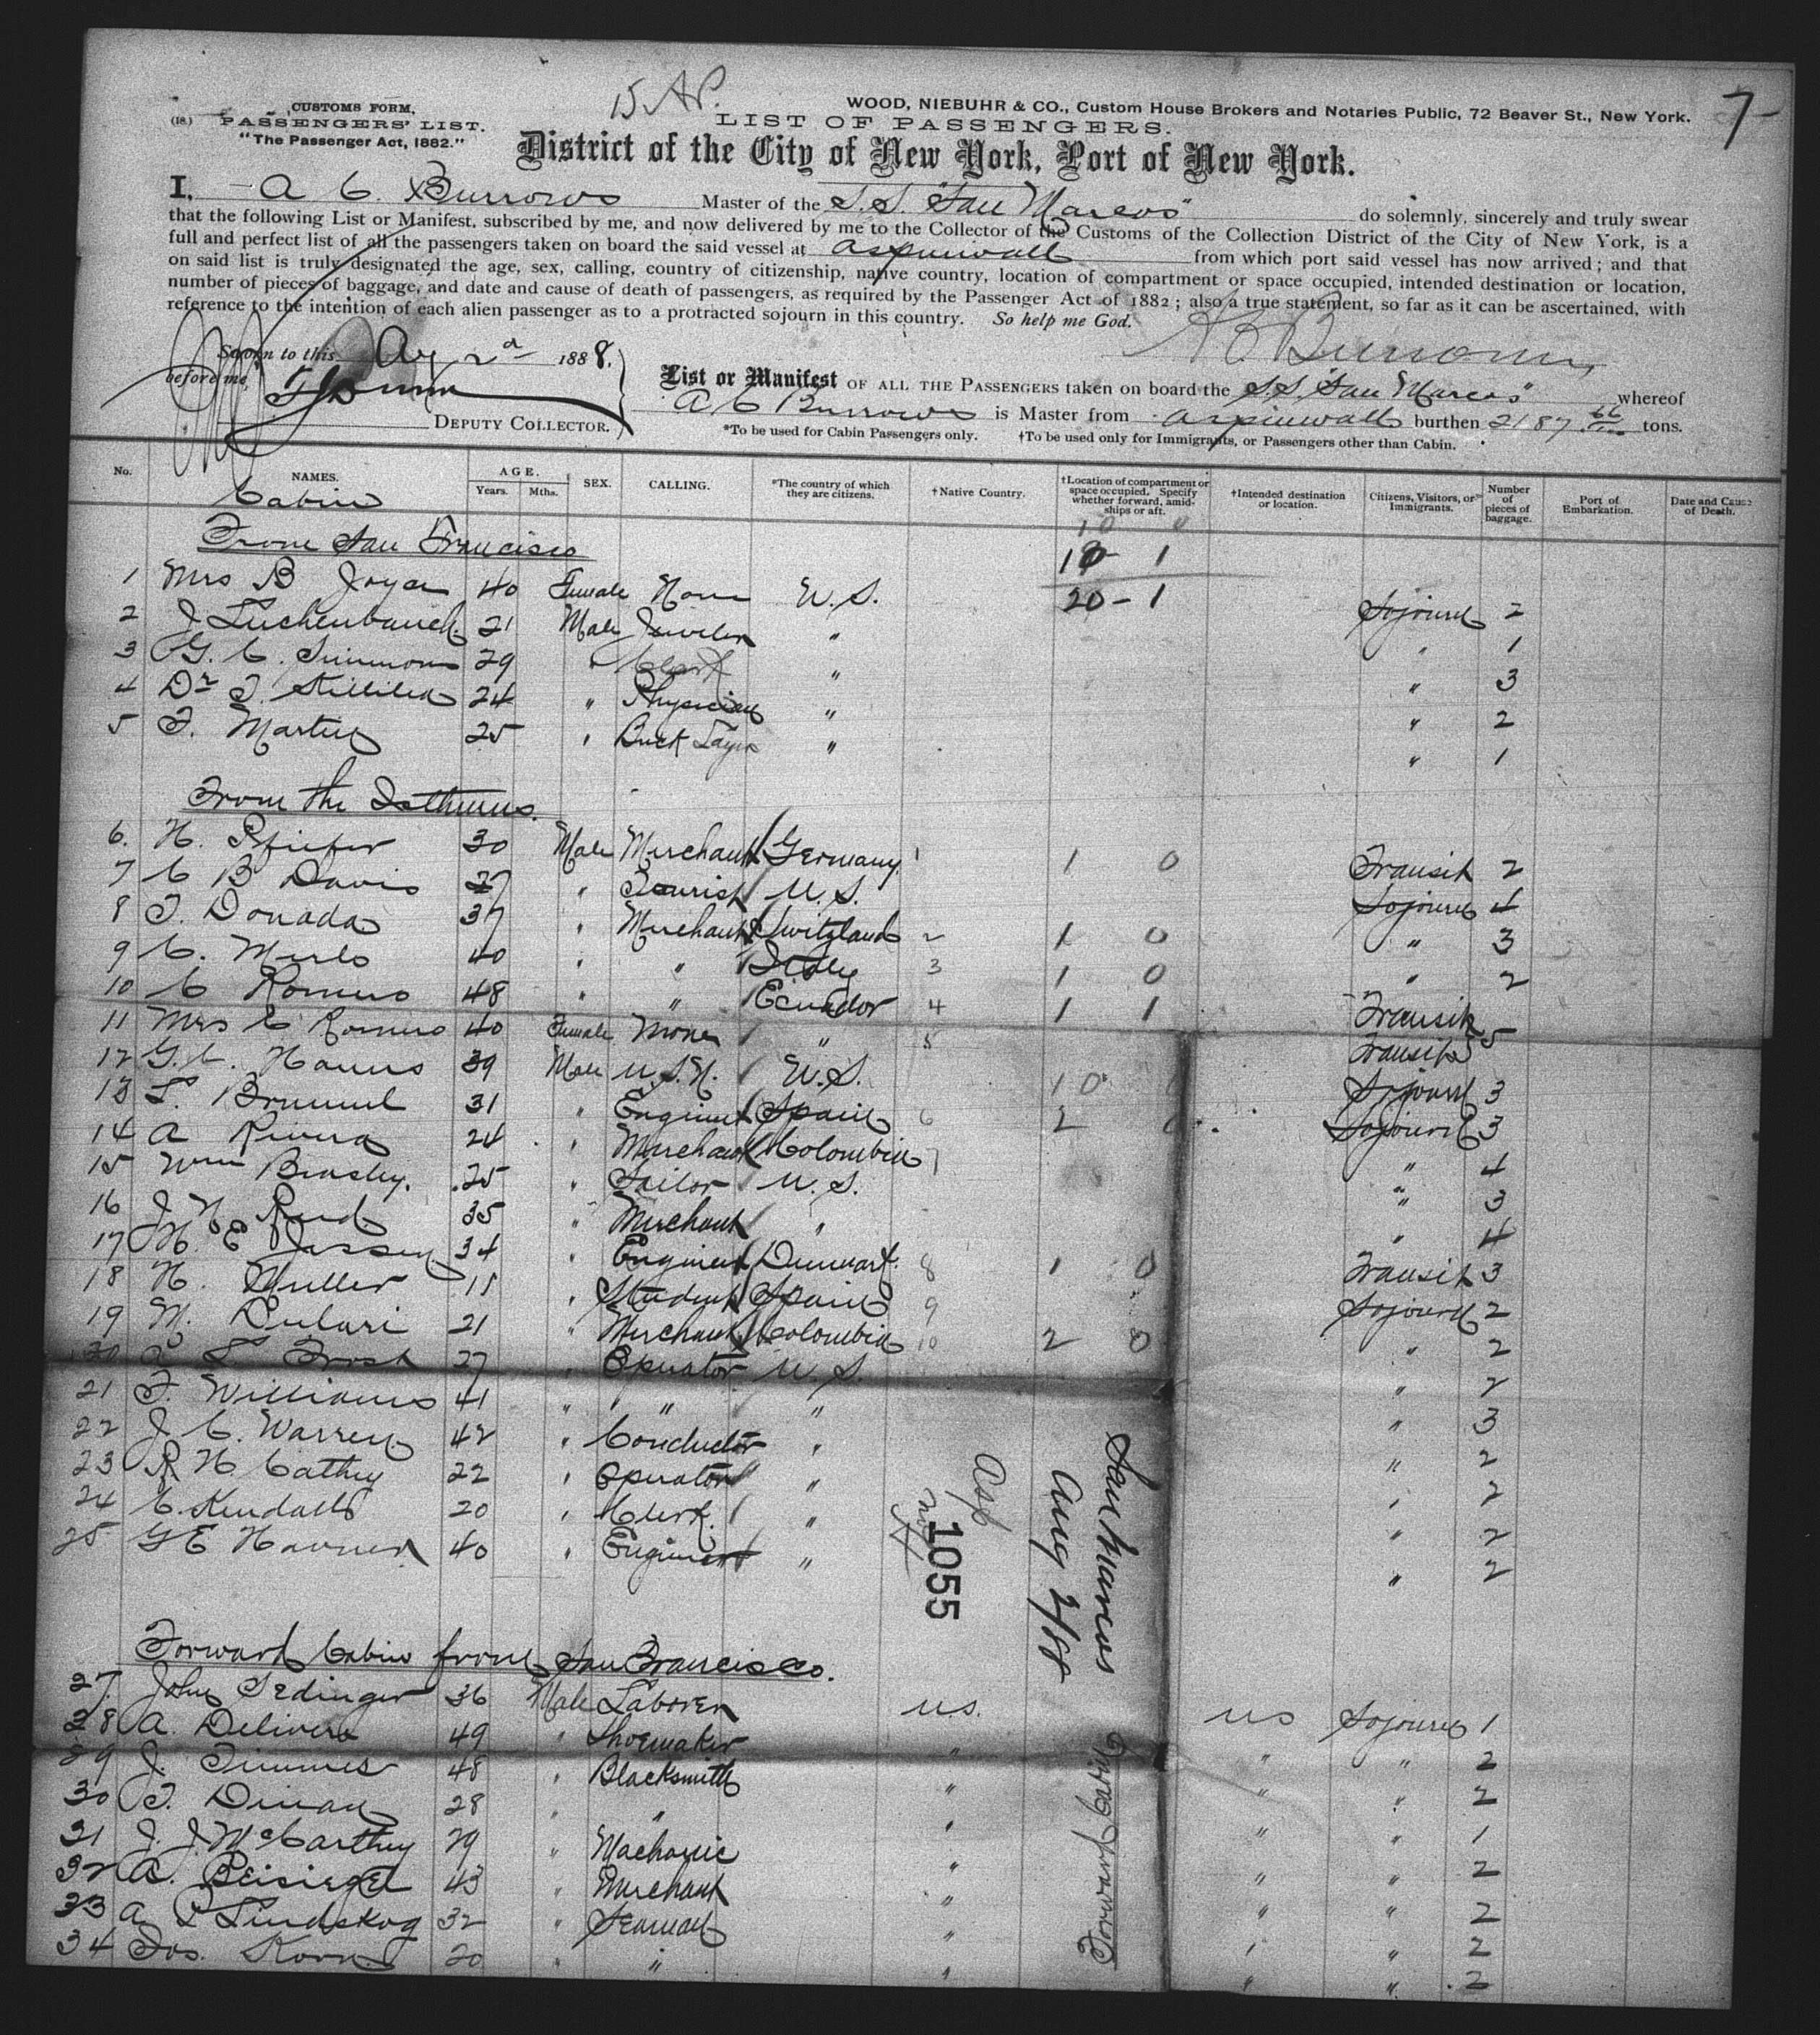 15 AP.
7-
CUSTOMS FORM.
(18.) PASSENGERS' LIST.
"The Passenger Act, 1882."
WOOD, NIEBUHR & CO., Custom House Brokers and Notaries Public, 72 Beaver St., New York.
LIST OF PASSENGERS.
District of the City of New York, Port of New York.
I, A C Burrows Master of the S.S. "San Marcos" do solemnly, sincerely and truly swear
that the following List or Manifest, subscribed by me, and now delivered by me to the Collector of the Customs of the Collection District of the City of New York, is a
full and perfect list of all the passengers taken on board the said vessel at Aspinwall from which port said vessel has now arrived; and that
on said list is truly designated the age, sex, calling, country of citizenship, native country, location of compartment or space occupied, intended destination or location,
number of pieces of baggage, and date and cause of death of passengers, as required by the Passenger Act of 1882; also a true statement, so far as it can be ascertained, with
reference to the intention of each alien passenger as to a protracted sojourn in this country. So help me God.
A C Burrows
Sworn to this Aug 2d 1888.
before me,
DEPUTY COLLECTOR.
List or Manifest OF ALL THE PASSENGERS taken on board the S.S. "San Marcos" whereof
A C Burrows is Master from Aspinwall burthen 2187 66/100 tons.
*To be used for Cabin Passengers only. †To be used only for Immigrants, or Passengers other than Cabin.
No. NAMES. AGE. Years. Mths. SEX. CALLING. *The country of which they are citizens. †Native Country. †Location of compartment or space occupied. Specify whether forward, amidships or aft. †Intended destination or location. Citizens, Visitors, or Immigrants. Number of pieces of baggage. Port of Embarkation. Date and Cause of Death.
Cabin
From San Francisco
10 - 1
20 - 1
1 Mrs B Joyce 40 Female None U.S. Sojourn 2
2 J Luchenbauch 21 Male Jeweler " " 1
3 G. C. Simmons 29 " Clerk " " 3
4 Dr J. 24 " Physician " " 2
5 F. Martin 25 " Brick Layer " " 1
From the Isthmus.
6. H. Pfeifer 30 Male Merchant Germany 1 1 0 Transit 2
7 C B Davis 27 " Tourist U.S. Sojourn 4
8 T. Donada 37 " Merchant Switzland 2 1 0 " 3
9 C. Merlo 40 " " Italy 3 1 0 " 2
10 C Romero 48 " " Ecuador 4 1 1 Transit
11 Mrs C Romero 40 Female None " 5 Transit 5
12 G. C. Hanus 39 Male U.S.N. U.S. 10 Sojourn 3
13 L. Brunnel 31 " Engineer Spain 6 2 Sojourn 3
14 A Rivera 24 " Merchant Colombia 7 " 4
15 Wm Beasley. 25 " Sailor U.S. " 3
16 J H Reed 35 " Merchant " " 4
17 H. E Jassen 34 " Engineer Denmark. 8 1 0 Transit 3
18 H. Muller 18 " Student Spain 9 Sojourn 2
19 M. Dulari 21 " Merchant Colombia 10 2 0 " 2
20 L Frost 27 " Operator U.S. " 2
21 F. Williams 41 " " " " 3
22 J C. Warren 42 " Conductor " " 2
23 R H Cathey 22 " Operator " " 2
24 C. Kendall 20 " Clerk. " " 2
25 G E Havner 40 " Engineer " " 2
Asp
1055
San Marcos
Aug 2/88
Forward Cabin from San Francisco.
27. John Sedinger 36 Male Laborer U.S. US Sojourn 1
28 A. Delivera 49 " Shoemaker " " " 2
29 J. Timmes 48 " Blacksmith " " " 2
30 T. Dinan 28 " " " " " 1
31 J. J McCarthy 29 " Machanic " " " 2
32 A. Beisiegel 43 " Merchant " " " 2
33 A P Lindskog 32 " Seaman " " " 2
34 Jos. Korn 20 " " " " " 2
Forward Cabin